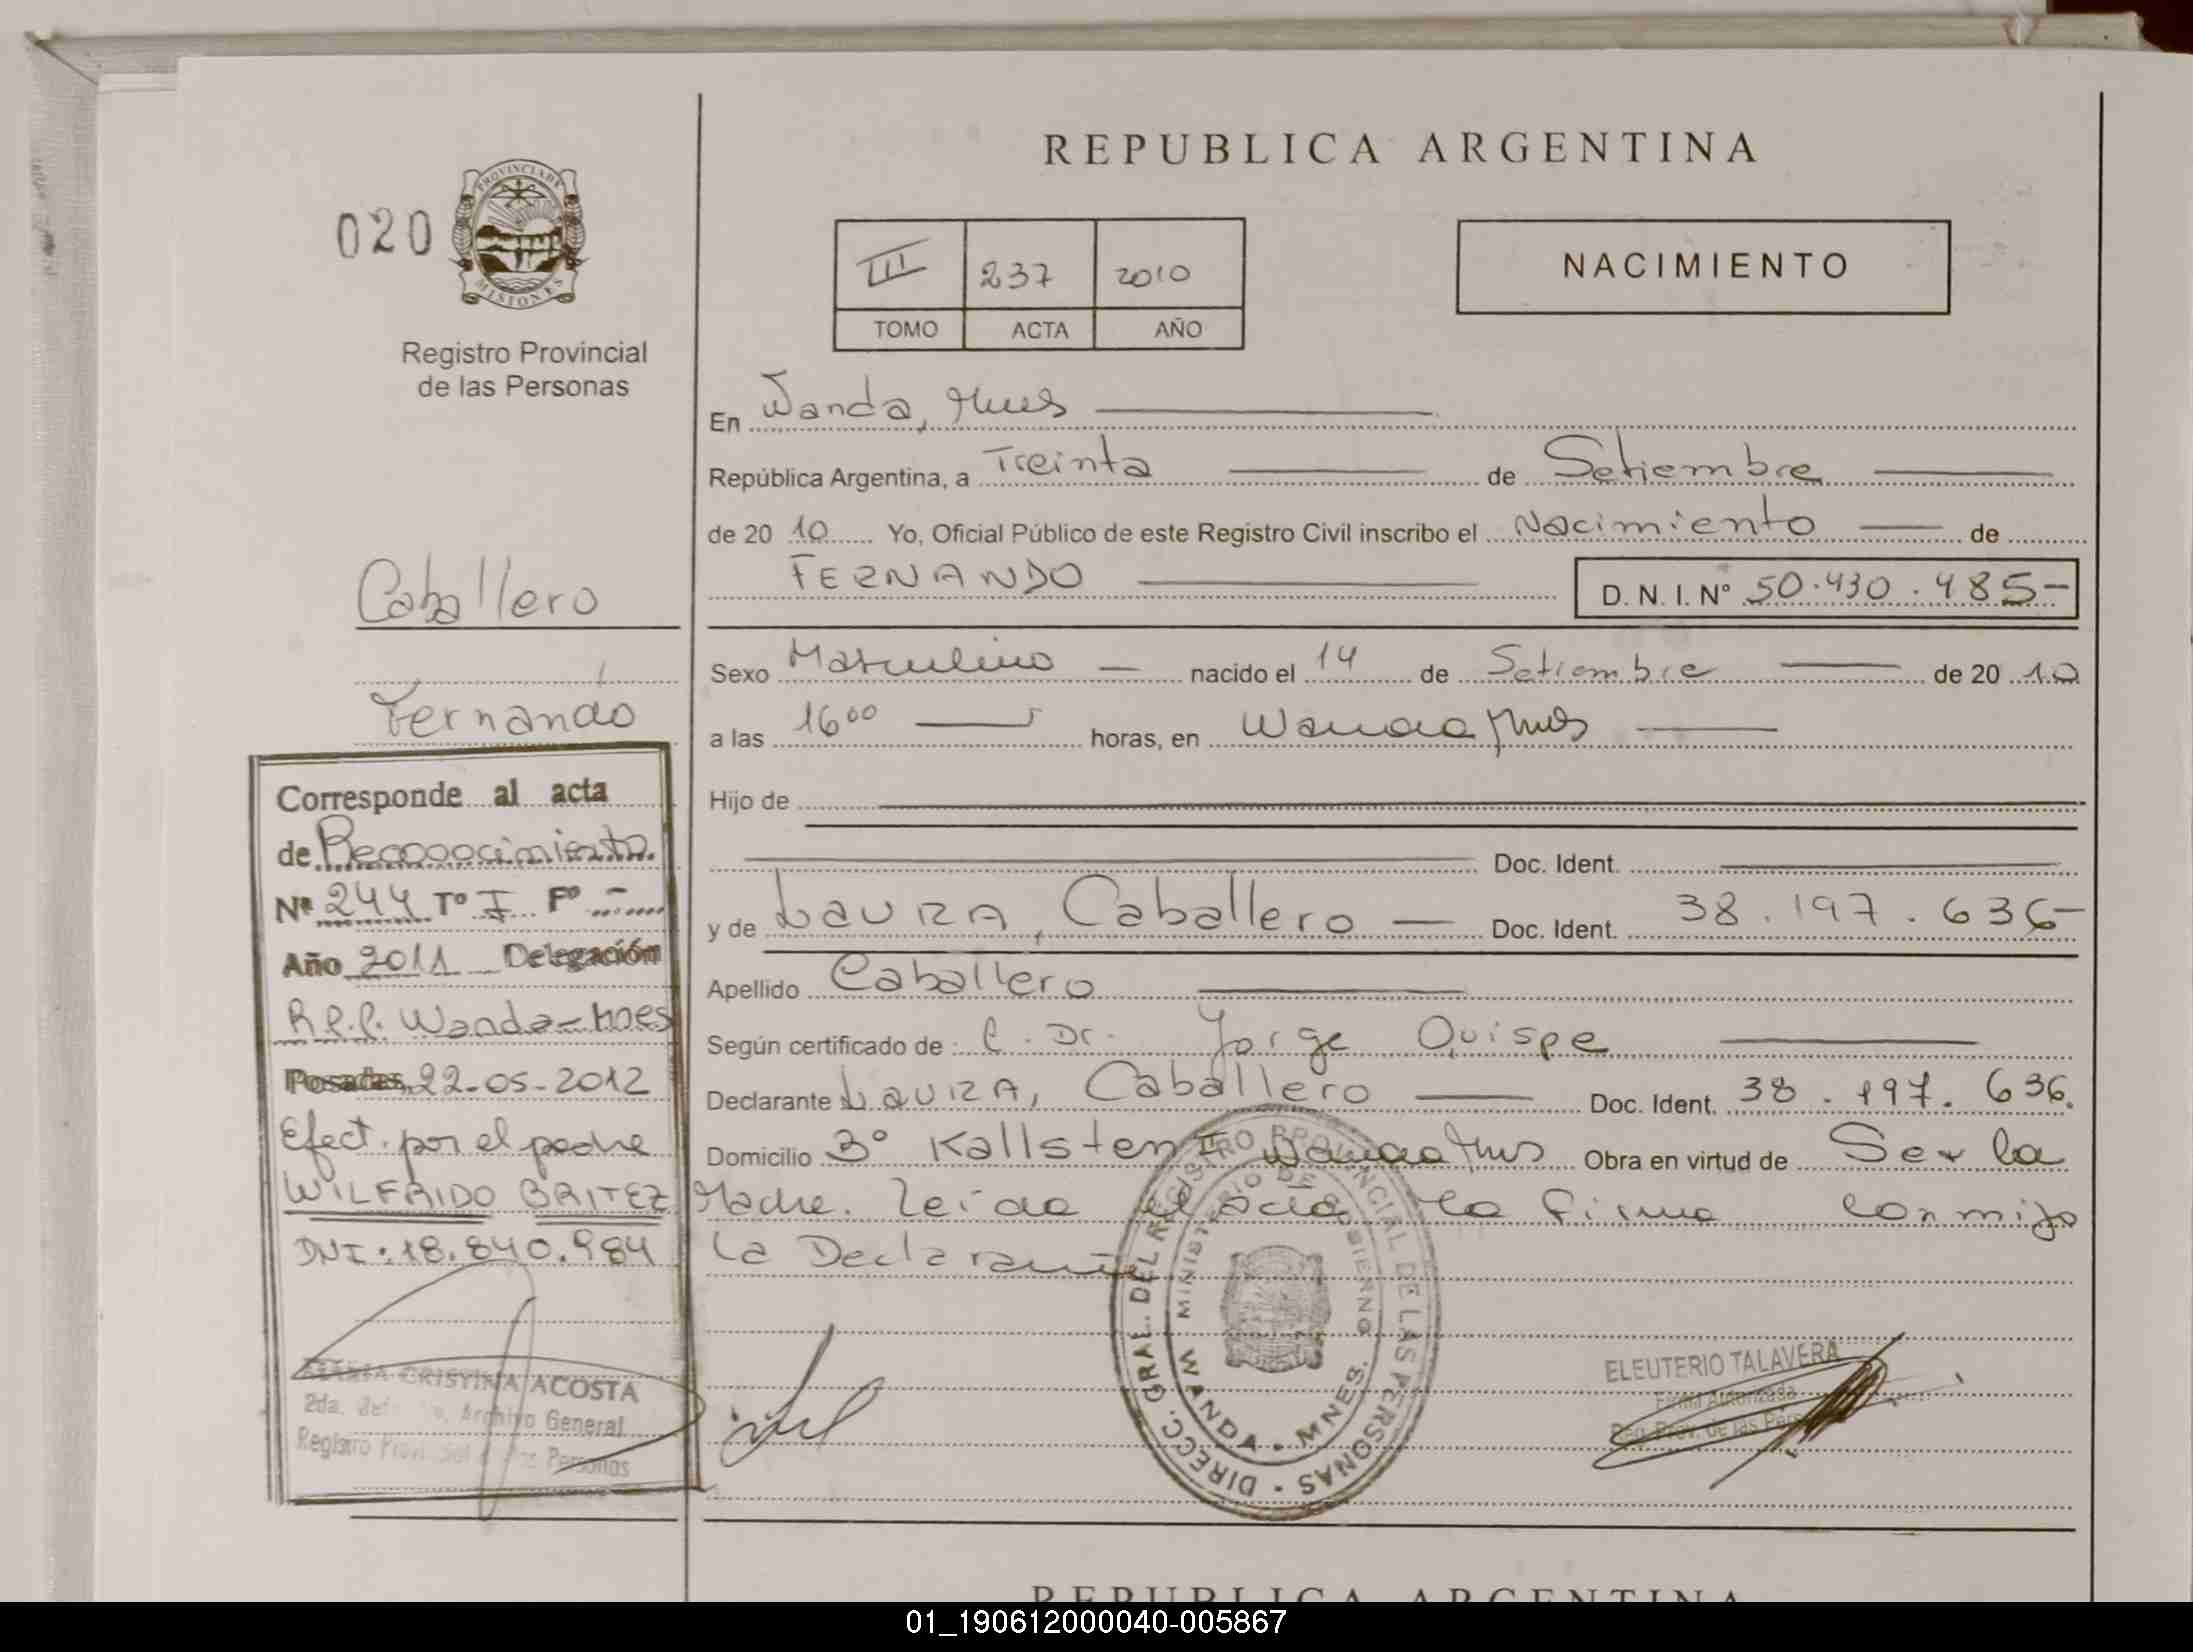 REPUBLICA ARGENTINA
020
PROVINCIA DE
MISIONES
Registro Provincial
de las Personas
III 237 2010
TOMO ACTA AÑO
NACIMIENTO
En Wanda, Mnes
República Argentina, a Treinta de Setiembre
de 20 10 Yo, Oficial Público de este Registro Civil inscribo el Nacimiento de
FERNANDO D. N. I. Nº 50.430.485-
Sexo Masculino nacido el 14 de Setiembre de 20 10
a las 16⁰⁰ horas, en Wanda Mnes
Hijo de
Doc. Ident.
y de LAURA, Caballero Doc. Ident. 38.197.636-
Apellido Caballero
Según certificado de : C. Dr. Jorge Quispe
Declarante LAURA, Caballero Doc. Ident. 38.197.636.
Domicilio Bº Kallsten II Wanda Mnes Obra en virtud de Ser la
Madre. Leida el acta la firma conmigo
la Declarante
Caballero
Fernando
Corresponde al acta
de Reconocimiento
Nº 244 Tº I Fº -
Año 2011 Delegación
R.P.P. Wanda - Mnes
Posadas, 22-05-2012
Efect. por el padre
WILFRIDO BRITEZ
DNI: 18.840.984
MARIA CRISTINA ACOSTA
2da. Archivo General
Registro Provincial de las Personas
DIRECC. GRAL. DEL REGISTRO PROVINCIAL DE LAS PERSONAS
MINISTERIO DE GOBIERNO
WANDA - MNES.
ELEUTERIO TALAVERA
Firma Autorizada
Reg. Prov. de las Pers
REPUBLICA ARGENTINA
01_190612000040-005867